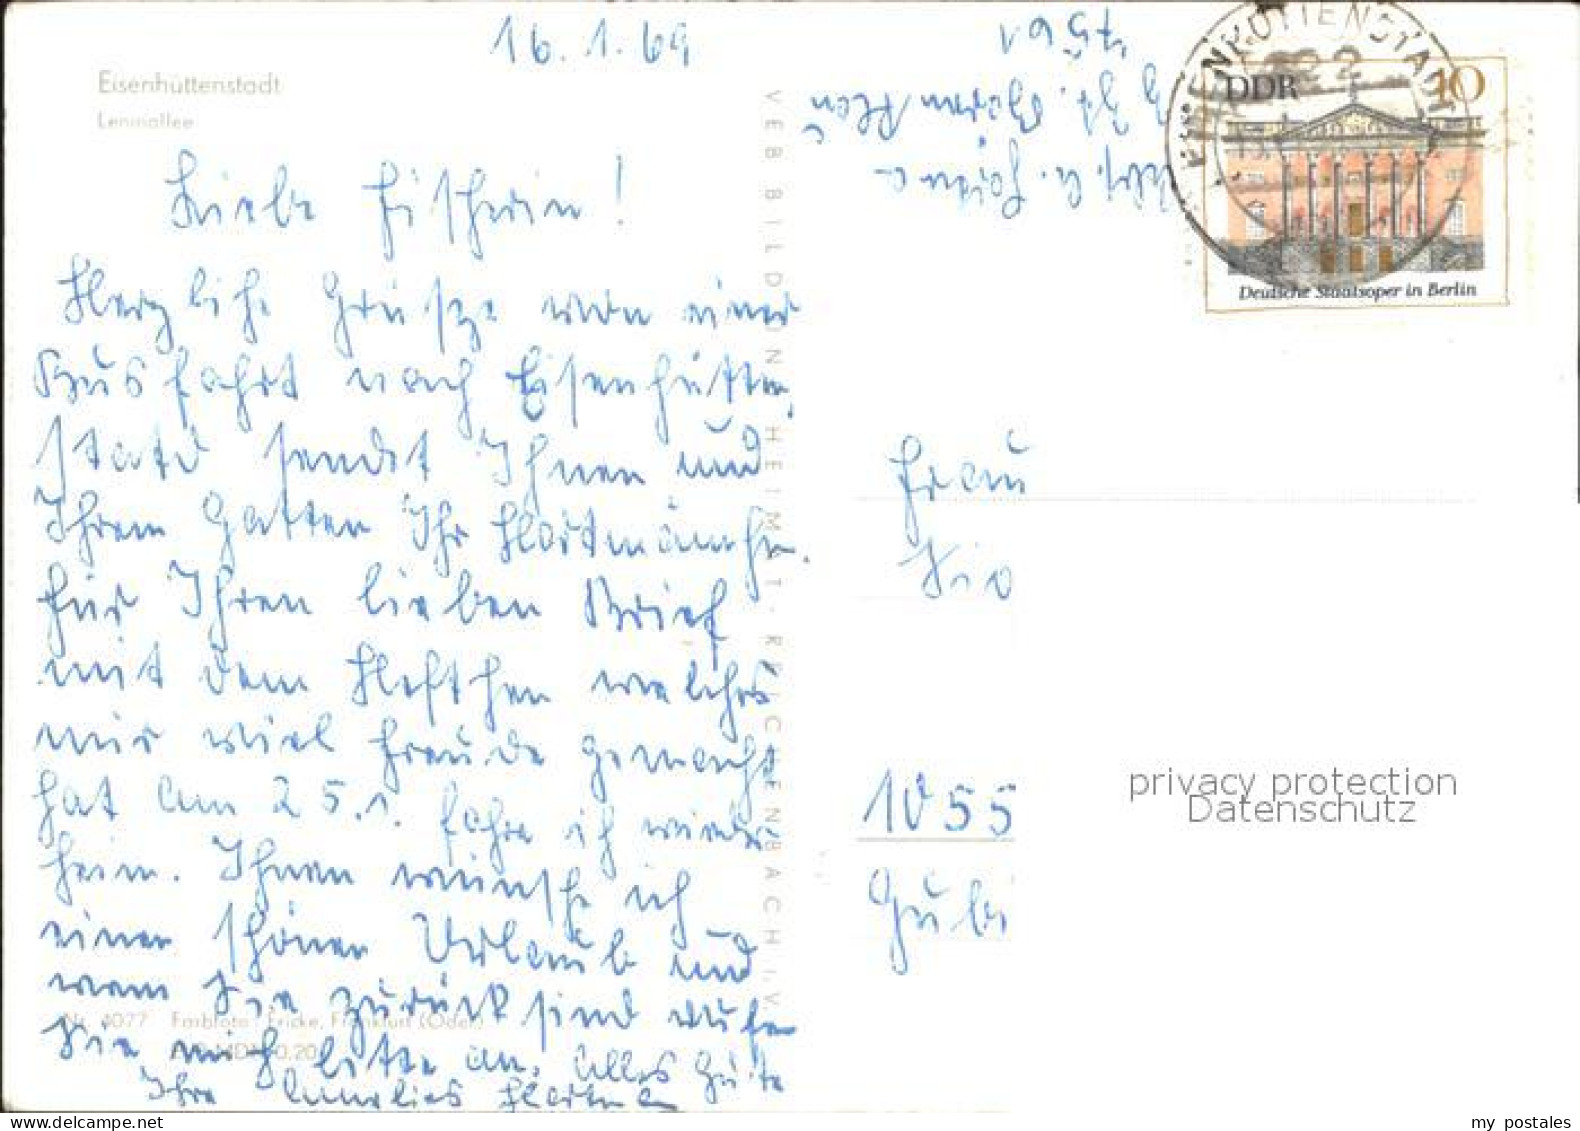 16.1.69
Eisenhüttenstadt
Leninallee
Liebe Fischerin!
Herzliche Grüsze von einer
Busfahrt nach Eisenhütten
stadt sendet Ihnen und
Ihrem Gatten Ihr Hartmännchen.
für Ihren lieben Brief
mit dem Heftchen welches
mir viel Freude gemacht
hat am 25.1. fahre ich wieder
heim. Ihnen wünsche ich
einen schönen Urlaub und
wenn Sie zurück sind rufen
Sie mich bitte an. Alles Gute
Ihre Annelies Hartman
Nr. 4077 Farbfoto: Fricke, Frankfurt (Oder)
0,20
VEB BILD UND HEIMAT · REICHENBACH I. V.
7561
DDR 10
Deutsche Staatsoper in Berlin
EISENHÜTTENSTADT
Frau
1055
privacy protection
Datenschutz
my postales